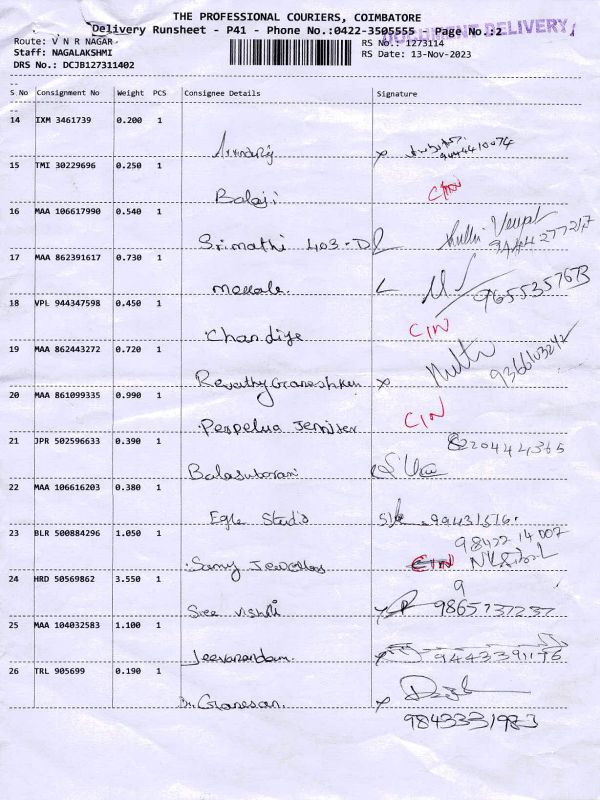 THE PROFESSIONAL COURIERS, COIMBATORE
DOCUMENT DELIVERY
Delivery Runsheet - P41 - Phone No.:0422-3505555 Page No.:2
Route: V N R NAGAR
RS No.: 1273114
Staff: NAGALAKSHMI
RS Date: 13-Nov-2023
DRS No.: DCJB127311402
S No Consignment No Weight PCS Consignee Details Signature
14 IXM 3461739 0.200 1
15 TMI 30229696 0.250 1
Balaji CIN
16 MAA 106617990 0.540 1
Srimathi 403-D
9444277217
17 MAA 862391617 0.730 1
Mekala.
18 VPL 944347598 0.450 1
Chandiye CIN
19 MAA 862443272 0.720 1
Revathy Ganeshken x
20 MAA 861099335 0.990 1
Perpelua Jennifer CIN
21 JPR 502596633 0.390 1
8220444365
22 MAA 106616203 0.380 1
Egle Studio 99431516.
98422 14 007
23 BLR 500884296 1.050 1
Samy Jewellers CIN
24 HRD 50569862 3.550 1
9
Sree Vishnu 9865737237
25 MAA 104032583 1.100 1
Jeevanandam. x 9443391176
26 TRL 905699 0.190 1
Ganesan. x
9843331983